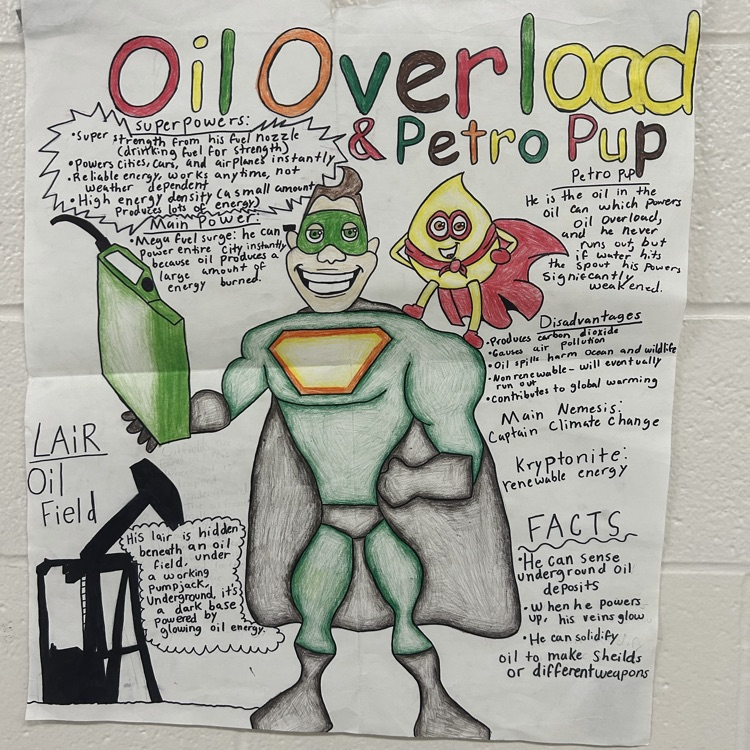 Oil Overload
& Petro Pup
superpowers:
•Super strength from his fuel nozzle
(drinking fuel for strength)
•Powers cities, cars, and airplanes instantly
•Reliable energy, works anytime, not
weather dependent
•High energy density (a small amount
Produces lots of energy)
Main Power:
•Mega fuel surge: he can
Power entire city instantly
because oil produces a
large amount of
energy burned.
Petro Pup
He is the oil in the
oil can which powers
oil Overload,
and he never
runs out, but
if water hits
the spout his Powers
Significantly
weakened.
Disadvantages
•Produces carbon dioxide
•Causes air pollution
•Oil spills harm ocean and wildlife
•Nonrenewable- will eventually
run out
•Contributes to global warming
Main Nemesis:
Captain Climate Change
Kryptonite:
renewable energy
LAIR
Oil
Field
His lair is hidden
beneath an oil
field, under
a working
Pumpjack.
Underground, it's
a dark base
powered by
glowing oil energy.
FACTS
•He can sense
underground oil
deposits
•When he powers
up, his veins glow
•He can solidify
oil to make sheilds
or different weapons